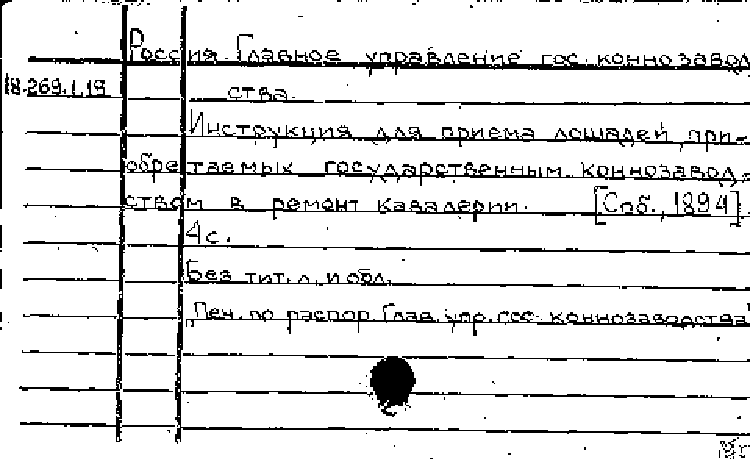 Россия Главное управление гос. коннозавод
18.269.1.19 ства.
Инструкция для приема лошадей, при-
обретаемых государственным коннозавод-
ством в ремонт кавалерии. [Спб., 1894].
4с.
Без тит. л. и обл.
"Печ. по распор. Глав. упр. гос. коннозаводства"